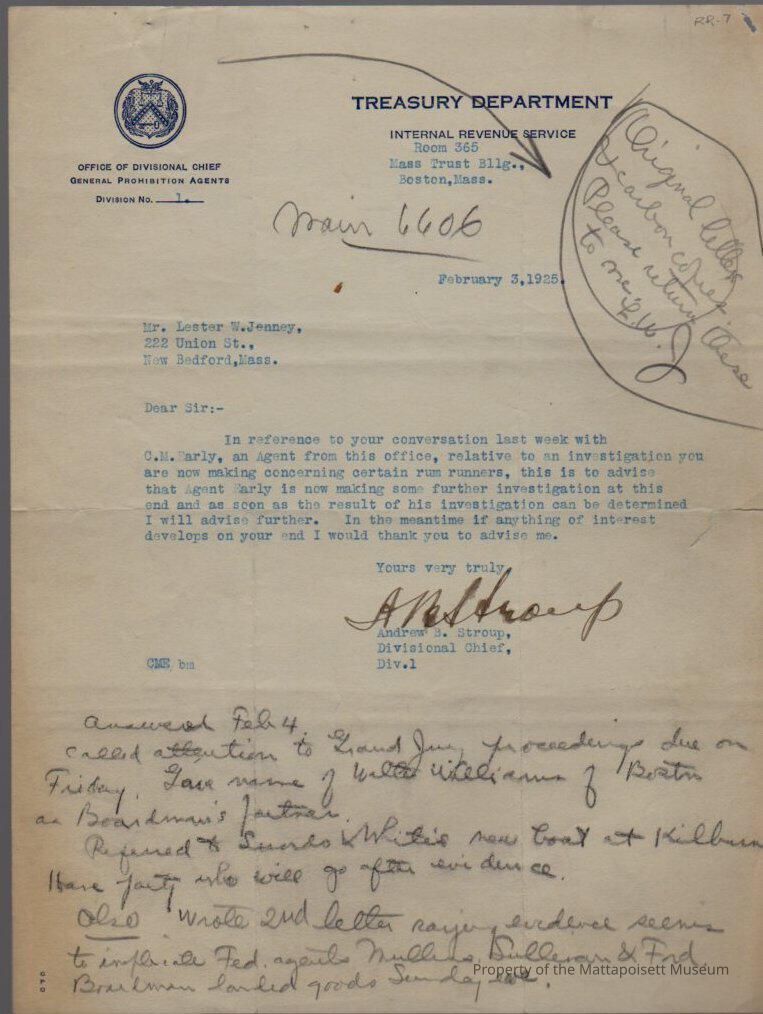 RR-7
TREASURY DEPARTMENT
INTERNAL REVENUE SERVICE
Room 365
Mass Trust Bllg.,
Boston,Mass.
OFFICE OF DIVISIONAL CHIEF
GENERAL PROHIBITION AGENTS
DIVISION NO. 1.
Main 6606
Original letter
& carbon copies.
Please return these
to me. L.W.J
February 3,1925.
Mr. Lester W.Jenney,
222 Union St.,
New Bedford,Mass.
Dear Sir:-
In reference to your conversation last week with
C.M.Early, an Agent from this office, relative to an investigation you
are now making concerning certain rum runners, this is to advise
that Agent Early is now making some further investigation at this
end and as soon as the result of his investigation can be determined
I will advise further. In the meantime if anything of interest
develops on your end I would thank you to advise me.
Yours very truly,
A B Stroup
Andrew B. Stroup,
Divisional Chief,
Div.1
CME bm
Answered Feb 4.
Called attention to Grand Jury proceedings due on
Friday. Gave name of Walter Williams of Boston
as Boardman's partner.
Referred to Swords & White's new boat at Kilburn
Have party who will go after evidence.
Also Wrote 2nd letter saying evidence seems
to implicate Fed. agents Mullins, Sullivan & Ford
Boardman landed goods Sunday eve.
Property of the Mattapoisett Museum